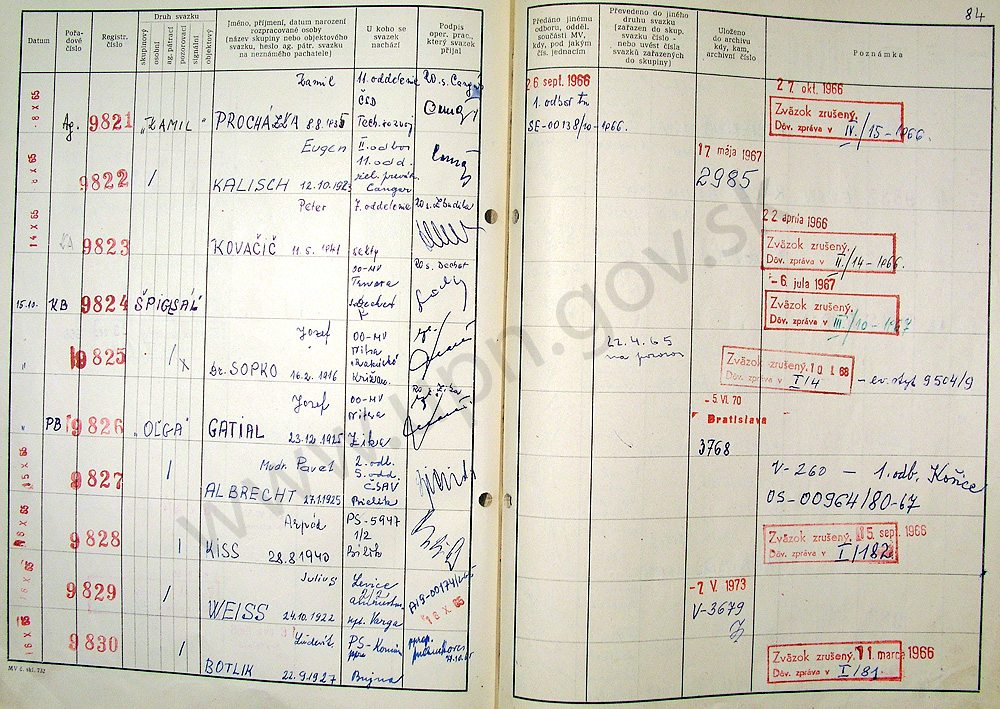 84
Datum
Pořadové číslo
Registr. číslo
Druh svazku
skupinový
osobní
ag. pátrací
pozorovací
signální
objektový
Jméno, příjmení, datum narození
rozpracované osoby
(název skupiny nebo objektového
svazku, heslo ag. pátr. svazku
na neznámého pachatele)
U koho se
svazek
nachází
Podpis
oper. prac.,
který svazek
přijal
Předáno jinému
odboru, odděl.
součásti MV,
kdy, pod jakým
čís. jednacím
Převedeno do jiného
druhu svazku
(zařazen do skup.
svazku číslo -
nebo uvést čísla
svazků zařazených
do skupiny)
Uloženo
do archivu
kdy, kam,
archivní číslo
Poznámka
8 X 65
Ag. 9821 "KAMIL"
Kamil
PROCHÁZKA 8.8.1935
11. oddelenie
ČSD
26 sept. 1966
1. odbor
SE-00138/10-1966.
27. okt. 1966
Zväzok zrušený.
Dôv. zpráva v IV./15-1966.
8 X 65
9822 /
Eugen
KALISCH 12.10.1923
II. odbor
11. odd.
Cangár
17 mája 1967
2985
14 X 65
9823
Peter
KOVAČIČ 11.5.1941
7. oddelenie
sekty
22 apríla 1966
Zväzok zrušený.
Dôv. zpráva v II./14-1966.
15.10. KB 9824 ŠPIGĽSÁL
OO-MV
Trnava
s. Dechet
-6. júla 1967
Zväzok zrušený.
Dôv. zpráva v III./10-1967
" 9825 /
Jozef
Dr. SOPKO 16.2.1916
OO-MV
Nitra
22.4.65
Zväzok zrušený. 10 I. 68
Dôv. zpráva v I/4
" PB 9826 "OĽGA"
Jozef
GATIAL 23.12.1925
OO-MV
Nitra
-5. VI. 70
Bratislava
3768
15 X 65
9827 /
Mudr. Pavel
ALBRECHT 27.1.1925
2. odb.
5. odd.
ČSAV
V-260 - 1. odb. Košice
OS-00964/80-67
16 X 65
9828 /
Arpód
KISS 28.8.1940
PS-5947
1/2
Zväzok zrušený. 5. sept. 1966
Dôv. zpráva v I/182
16 X 65
9829 /
Július
WEISS 24.10.1922
Levice
Varga
18 X 65
-7 V. 1973
V-3679
18 X 65
9830 /
Ľudovít
BOTLIK 22.9.1927
Bujna
11 marca 1966
Zväzok zrušený.
Dôv. zpráva v I/81.
MV č. skl. 752
www.upn.gov.sk